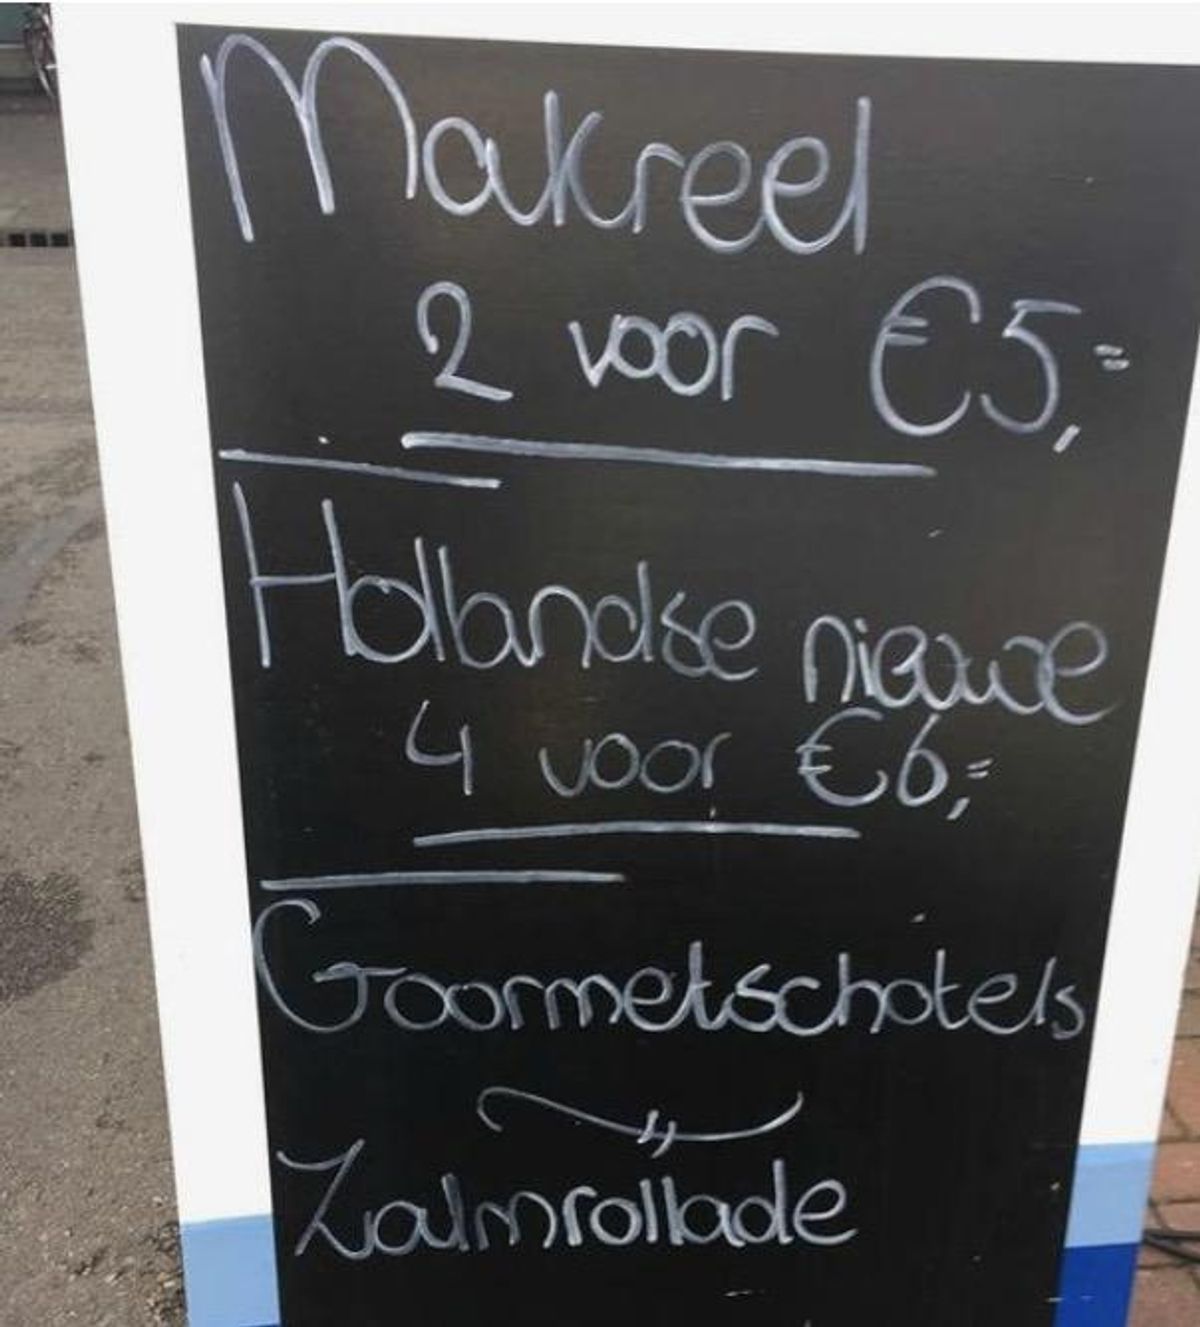 Makreel
2 voor €5,=
Hollandse nieuwe
4 voor €6,=
Goormetschotels
Zalmrollade